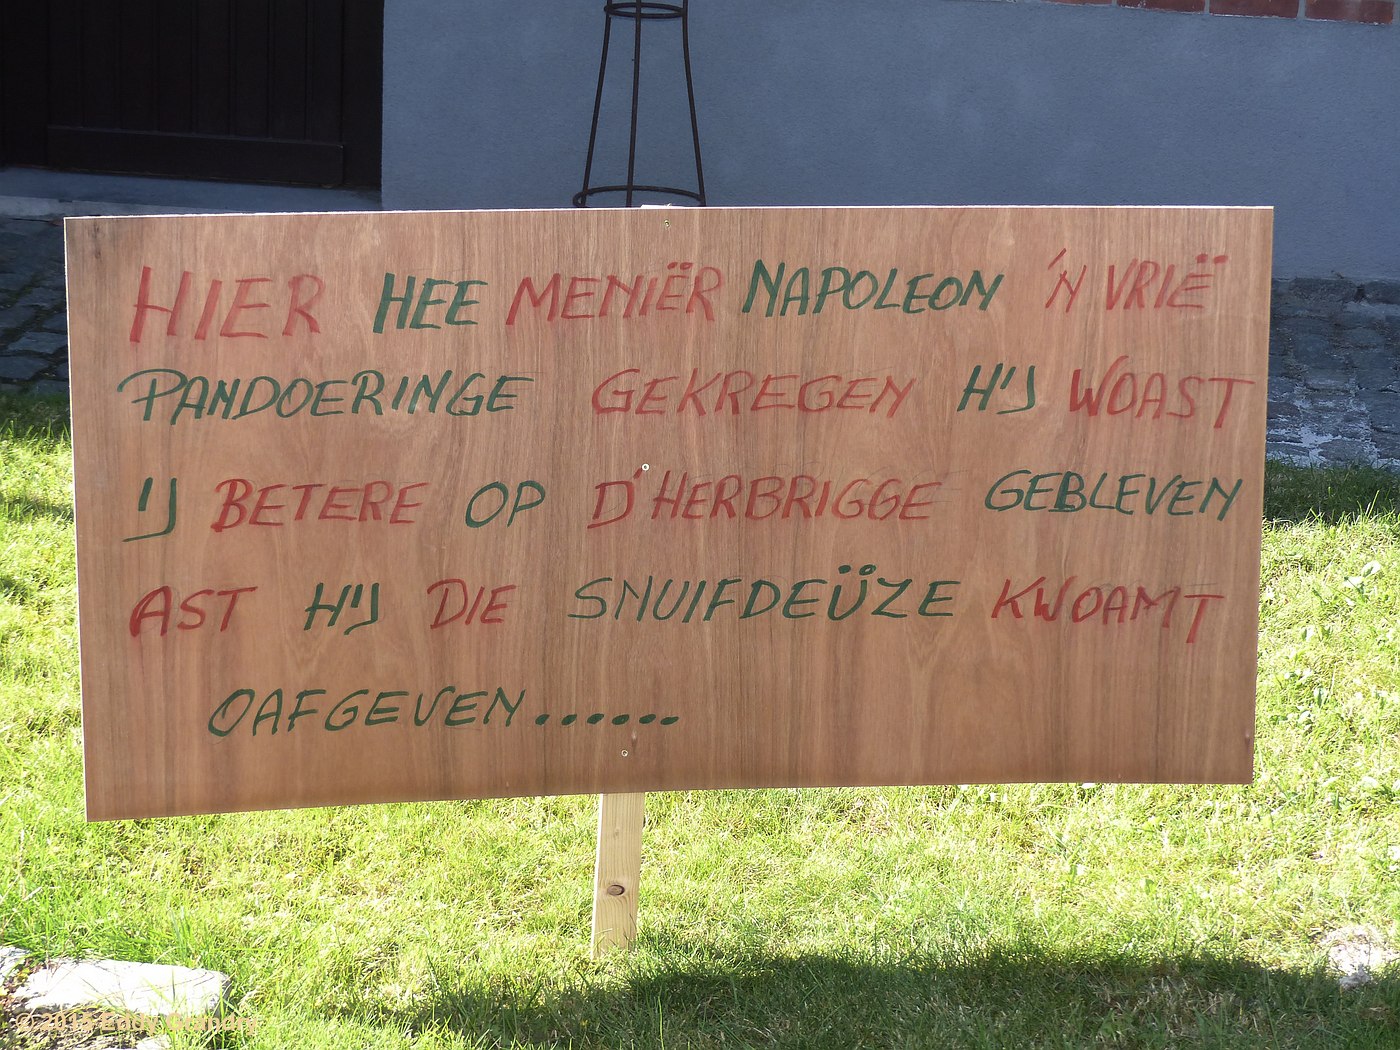 HIER HEE MENIËR NAPOLEON 'N VRIË
PANDOERINGE GEKREGEN HIJ WOAST
IJ BETERE OP D'HERBRIGGE GEBLEVEN
AST HIJ DIE SNUIFDEÜZE KWOAMT
OAFGEVEN......